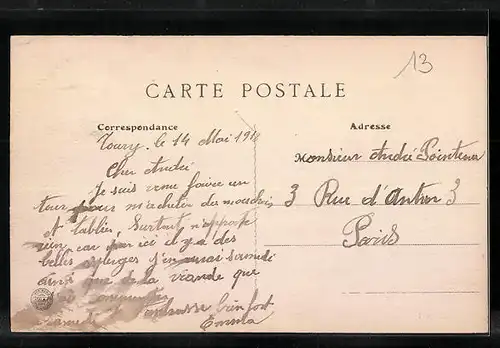 13
CARTE POSTALE
Correspondance
Adresse
Toury, le 14 Mai 191
Cher André
Je suis venu faire un
tour pour m'acheter des mouchoirs
et tablier, Surtout n'apporte
rien, car par ici il y a des
belles asperges j'en aurai samedi
ainsi que de la viande que
samedi t'embrasse bien fort
Emma
Monsieur André
3 Rue d'Antin 3
Paris